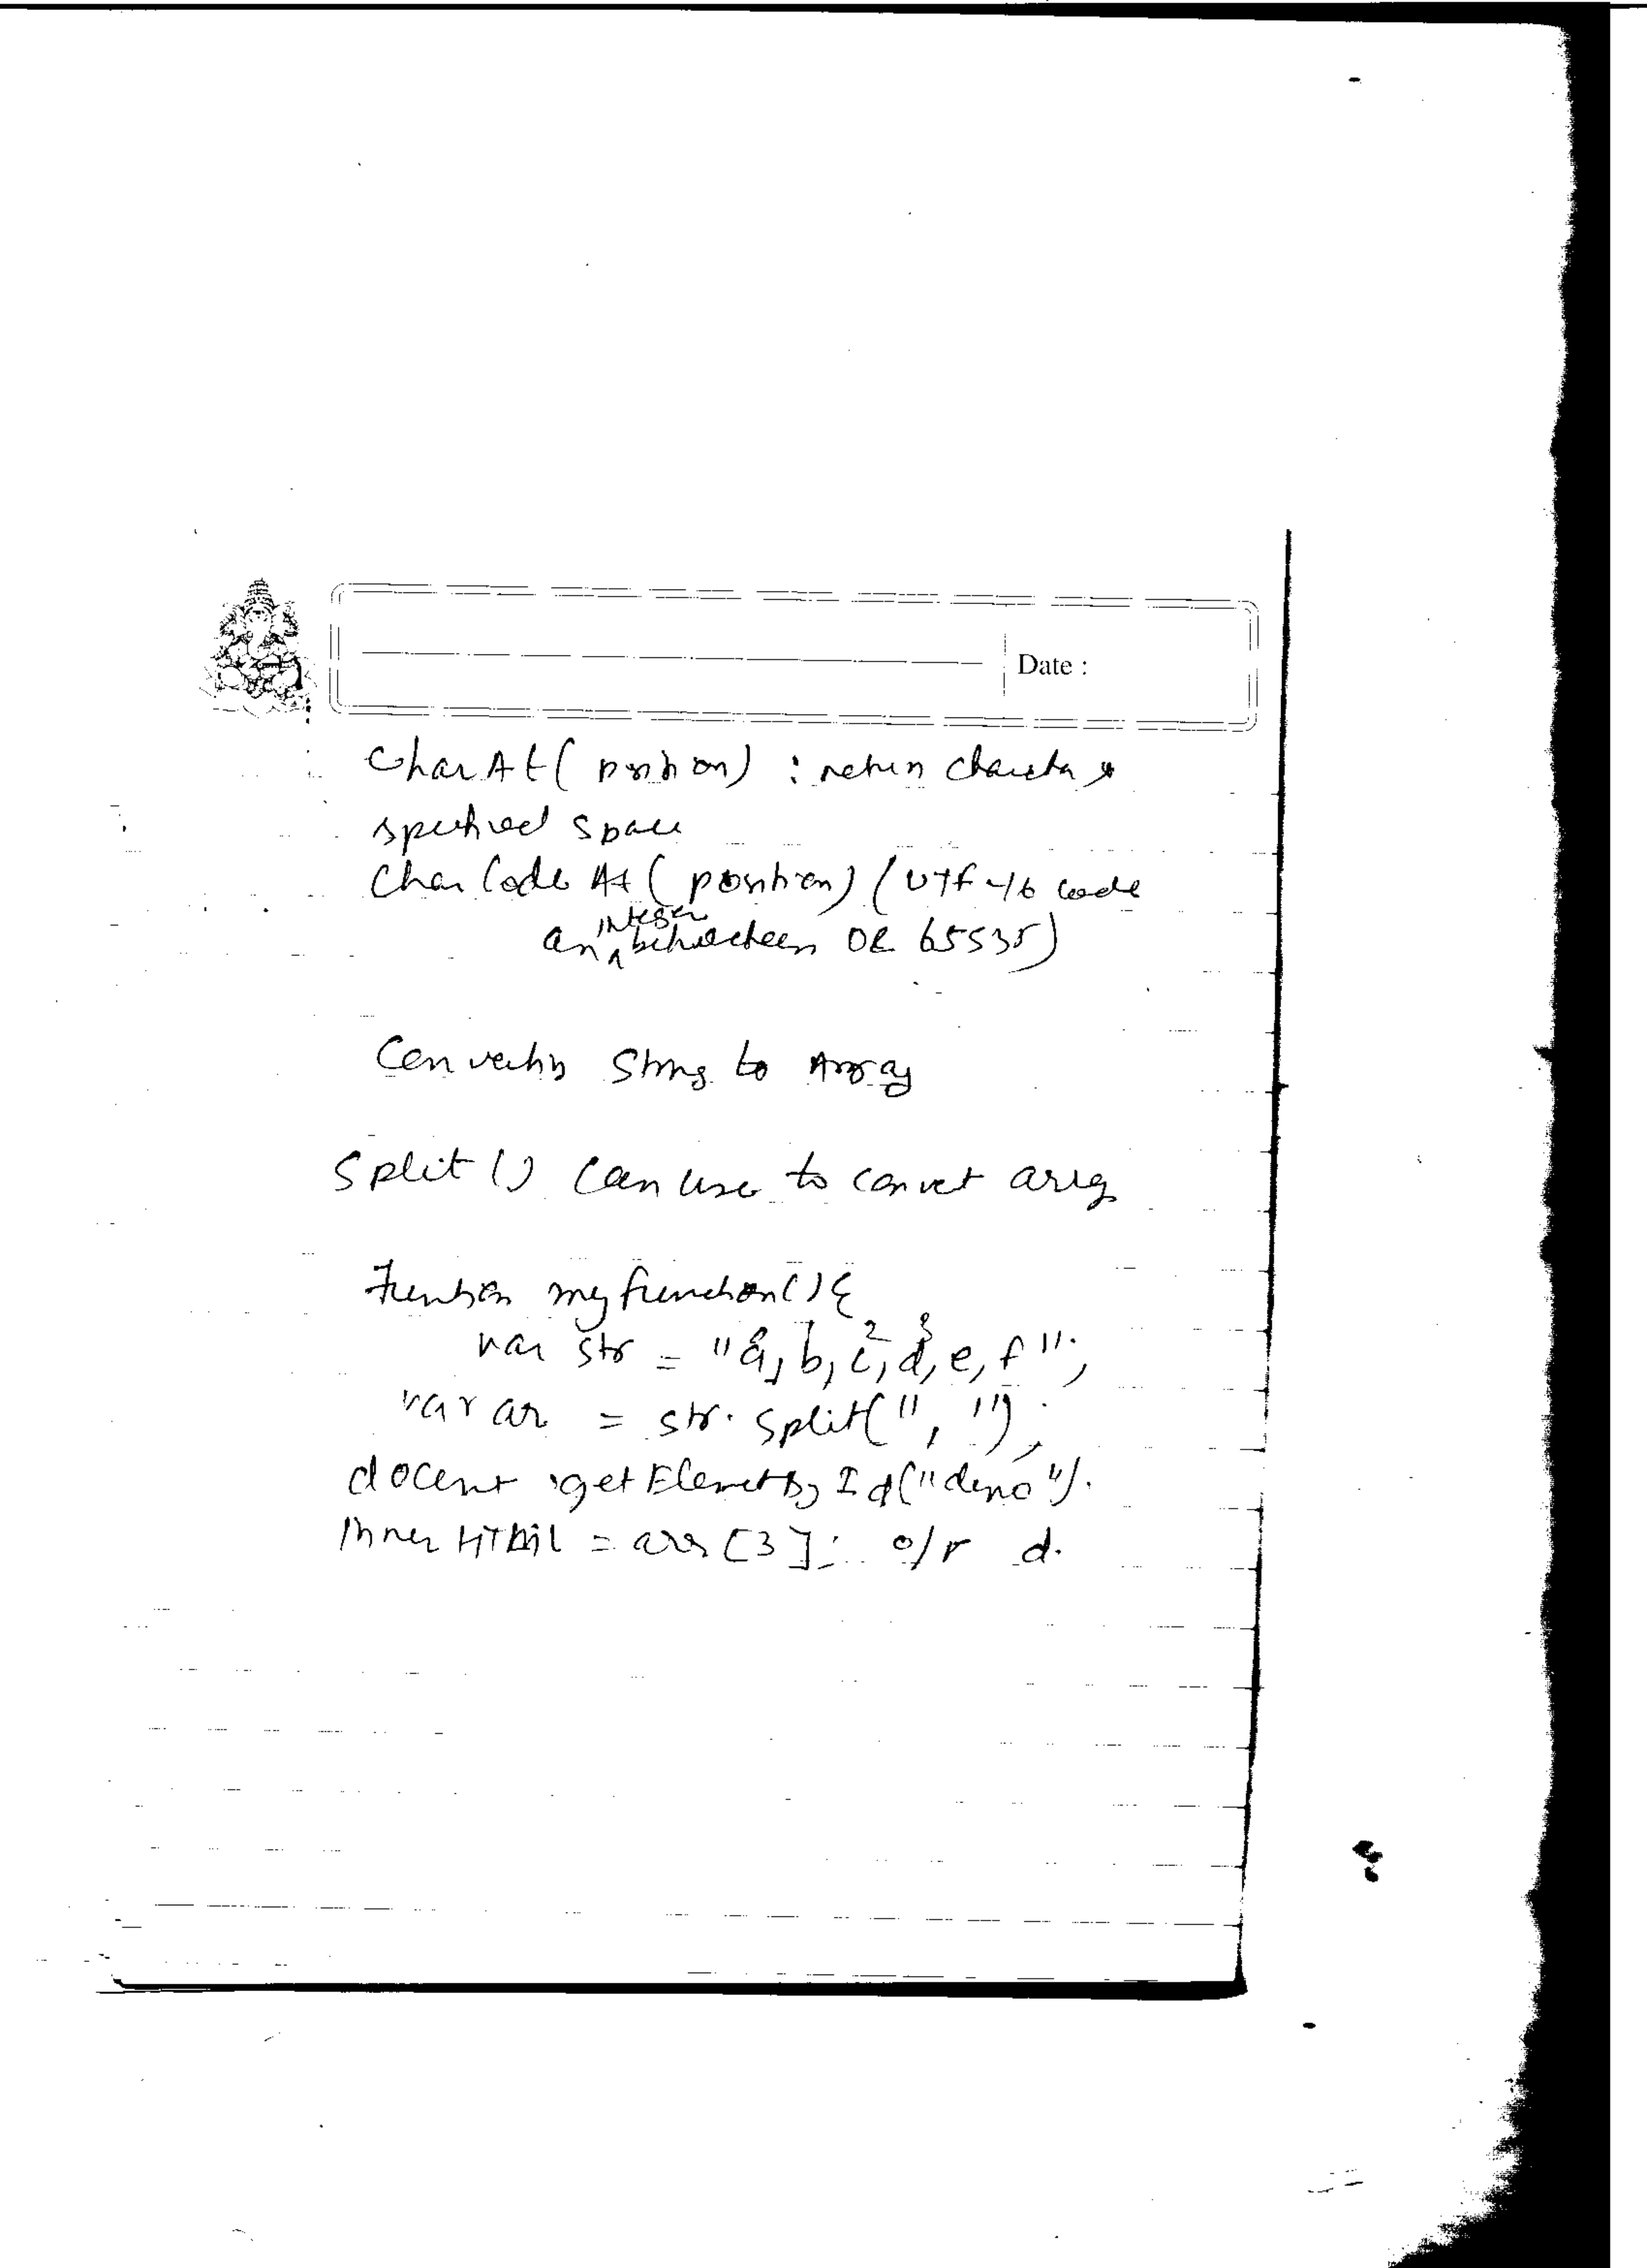 Date :
CharAt( position) : return character
specified space
Char Code At ( position) ( UTF-16 code
integer
an betwecteen OR 65535)
Converting String to Array
Split () Can use to convet array
Function myfunction(){
0 1 2 3
var str = "a, b, c, d, e, f";
var ar = str. split(" , ");
docent .getElemetBy Id("demo").
inner HTML = arr [3]; o/r d.